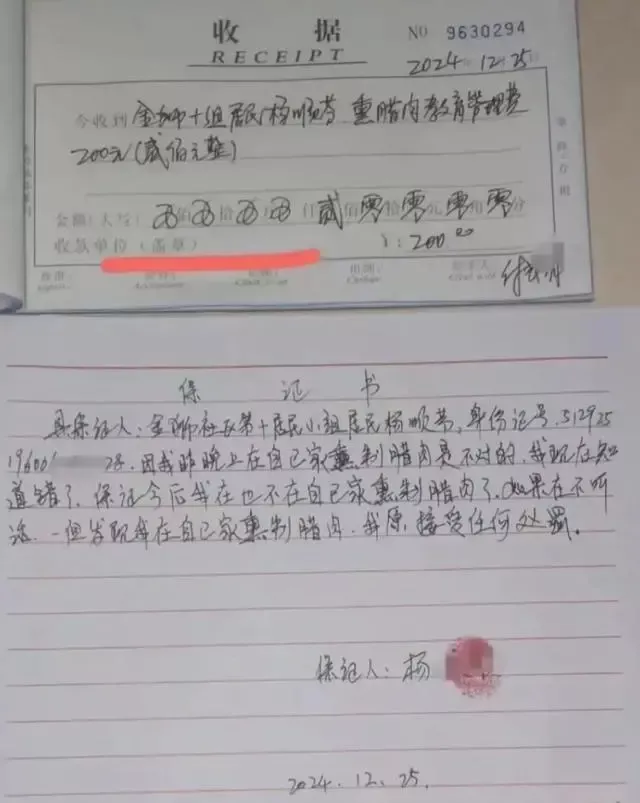 收 据
NO 9630294
RECEIPT
2024年12月25日
今收到 金狮十组居民杨顺芬 熏腊肉教育管理费
200元(贰佰元整)
金额(大写) 佰 拾 万 仟 贰 佰 零 拾 零 元 零 角 零 分
收款单位(盖章)
¥:200.00
保 证 书
具保证人:金狮社区第十居民小组居民杨顺芬,身份证号,512925
19600 28.因我昨晚上在自己家熏制腊肉是不对的,我现在知
道错了,保证今后我在也不在自己家熏制腊肉了,如果在不听
话.一但发现我在自己家熏制腊肉.我原接受任何处罚。
保证人:杨
2024.12.25.